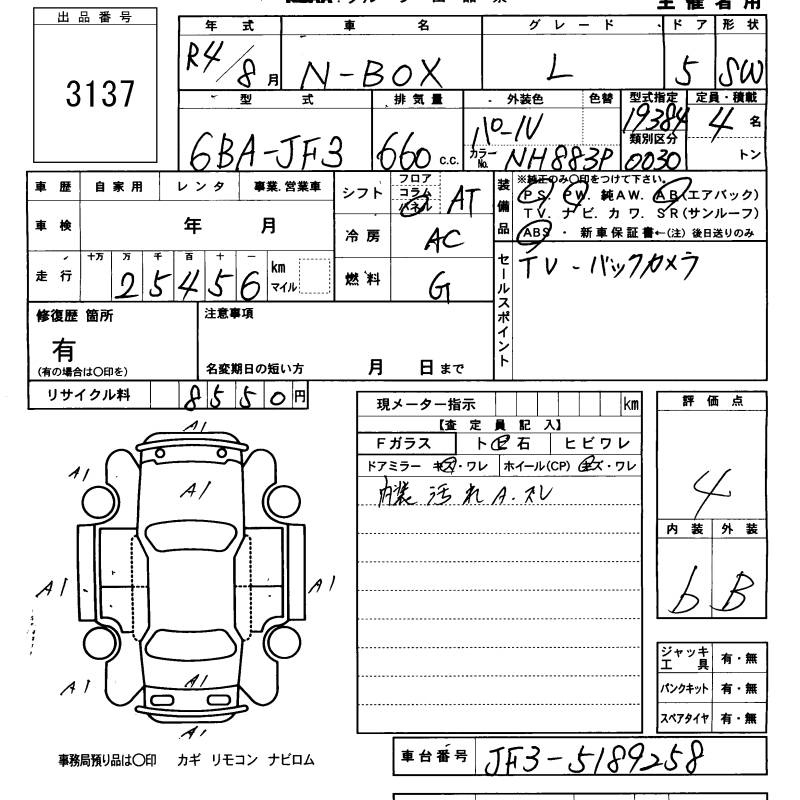 主催者用
出品番号
3137
年式 車名 グレード ドア 形状
R4/8月 N-BOX L 5 SW
型式 排気量 外装色 色替 型式指定 定員・積載
6BA-JF3 660 c.c. パール 19384 4名
カラーNo. NH883P 類別区分 0030 トン
車歴 自家用 レンタ 事業.営業車
車検 年 月
走行 十万 万 千 百 十 一
25456 km マイル
シフト フロア コラム パネル AT
冷房 AC
燃料 G
装備品 ※純正のみ○印をつけて下さい。
PS. PW. 純AW. AB(エアバック)
TV. ナビ. カワ. SR(サンルーフ)
ABS ・ 新車保証書←(注) 後日送りのみ
セールスポイント
TV-バックカメラ
修復歴 箇所
有
(有の場合は○印を)
注意事項
名変期日の短い方 月 日まで
リサイクル料 8550円
現メーター指示 km
【査定員記入】
Fガラス ト ビ 石 ヒビワレ
ドアミラー キズ・ワレ ホイール(CP) キズ・ワレ
内装 汚れ A.スレ
評価点
4
内装 外装
b B
A1
A1
A1
A1
A1
A1
A1
A1
ジャッキ工具 有・無
パンクキット 有・無
スペアタイヤ 有・無
車台番号 JF3-5189258
事務局預り品は○印 カギ リモコン ナビロム